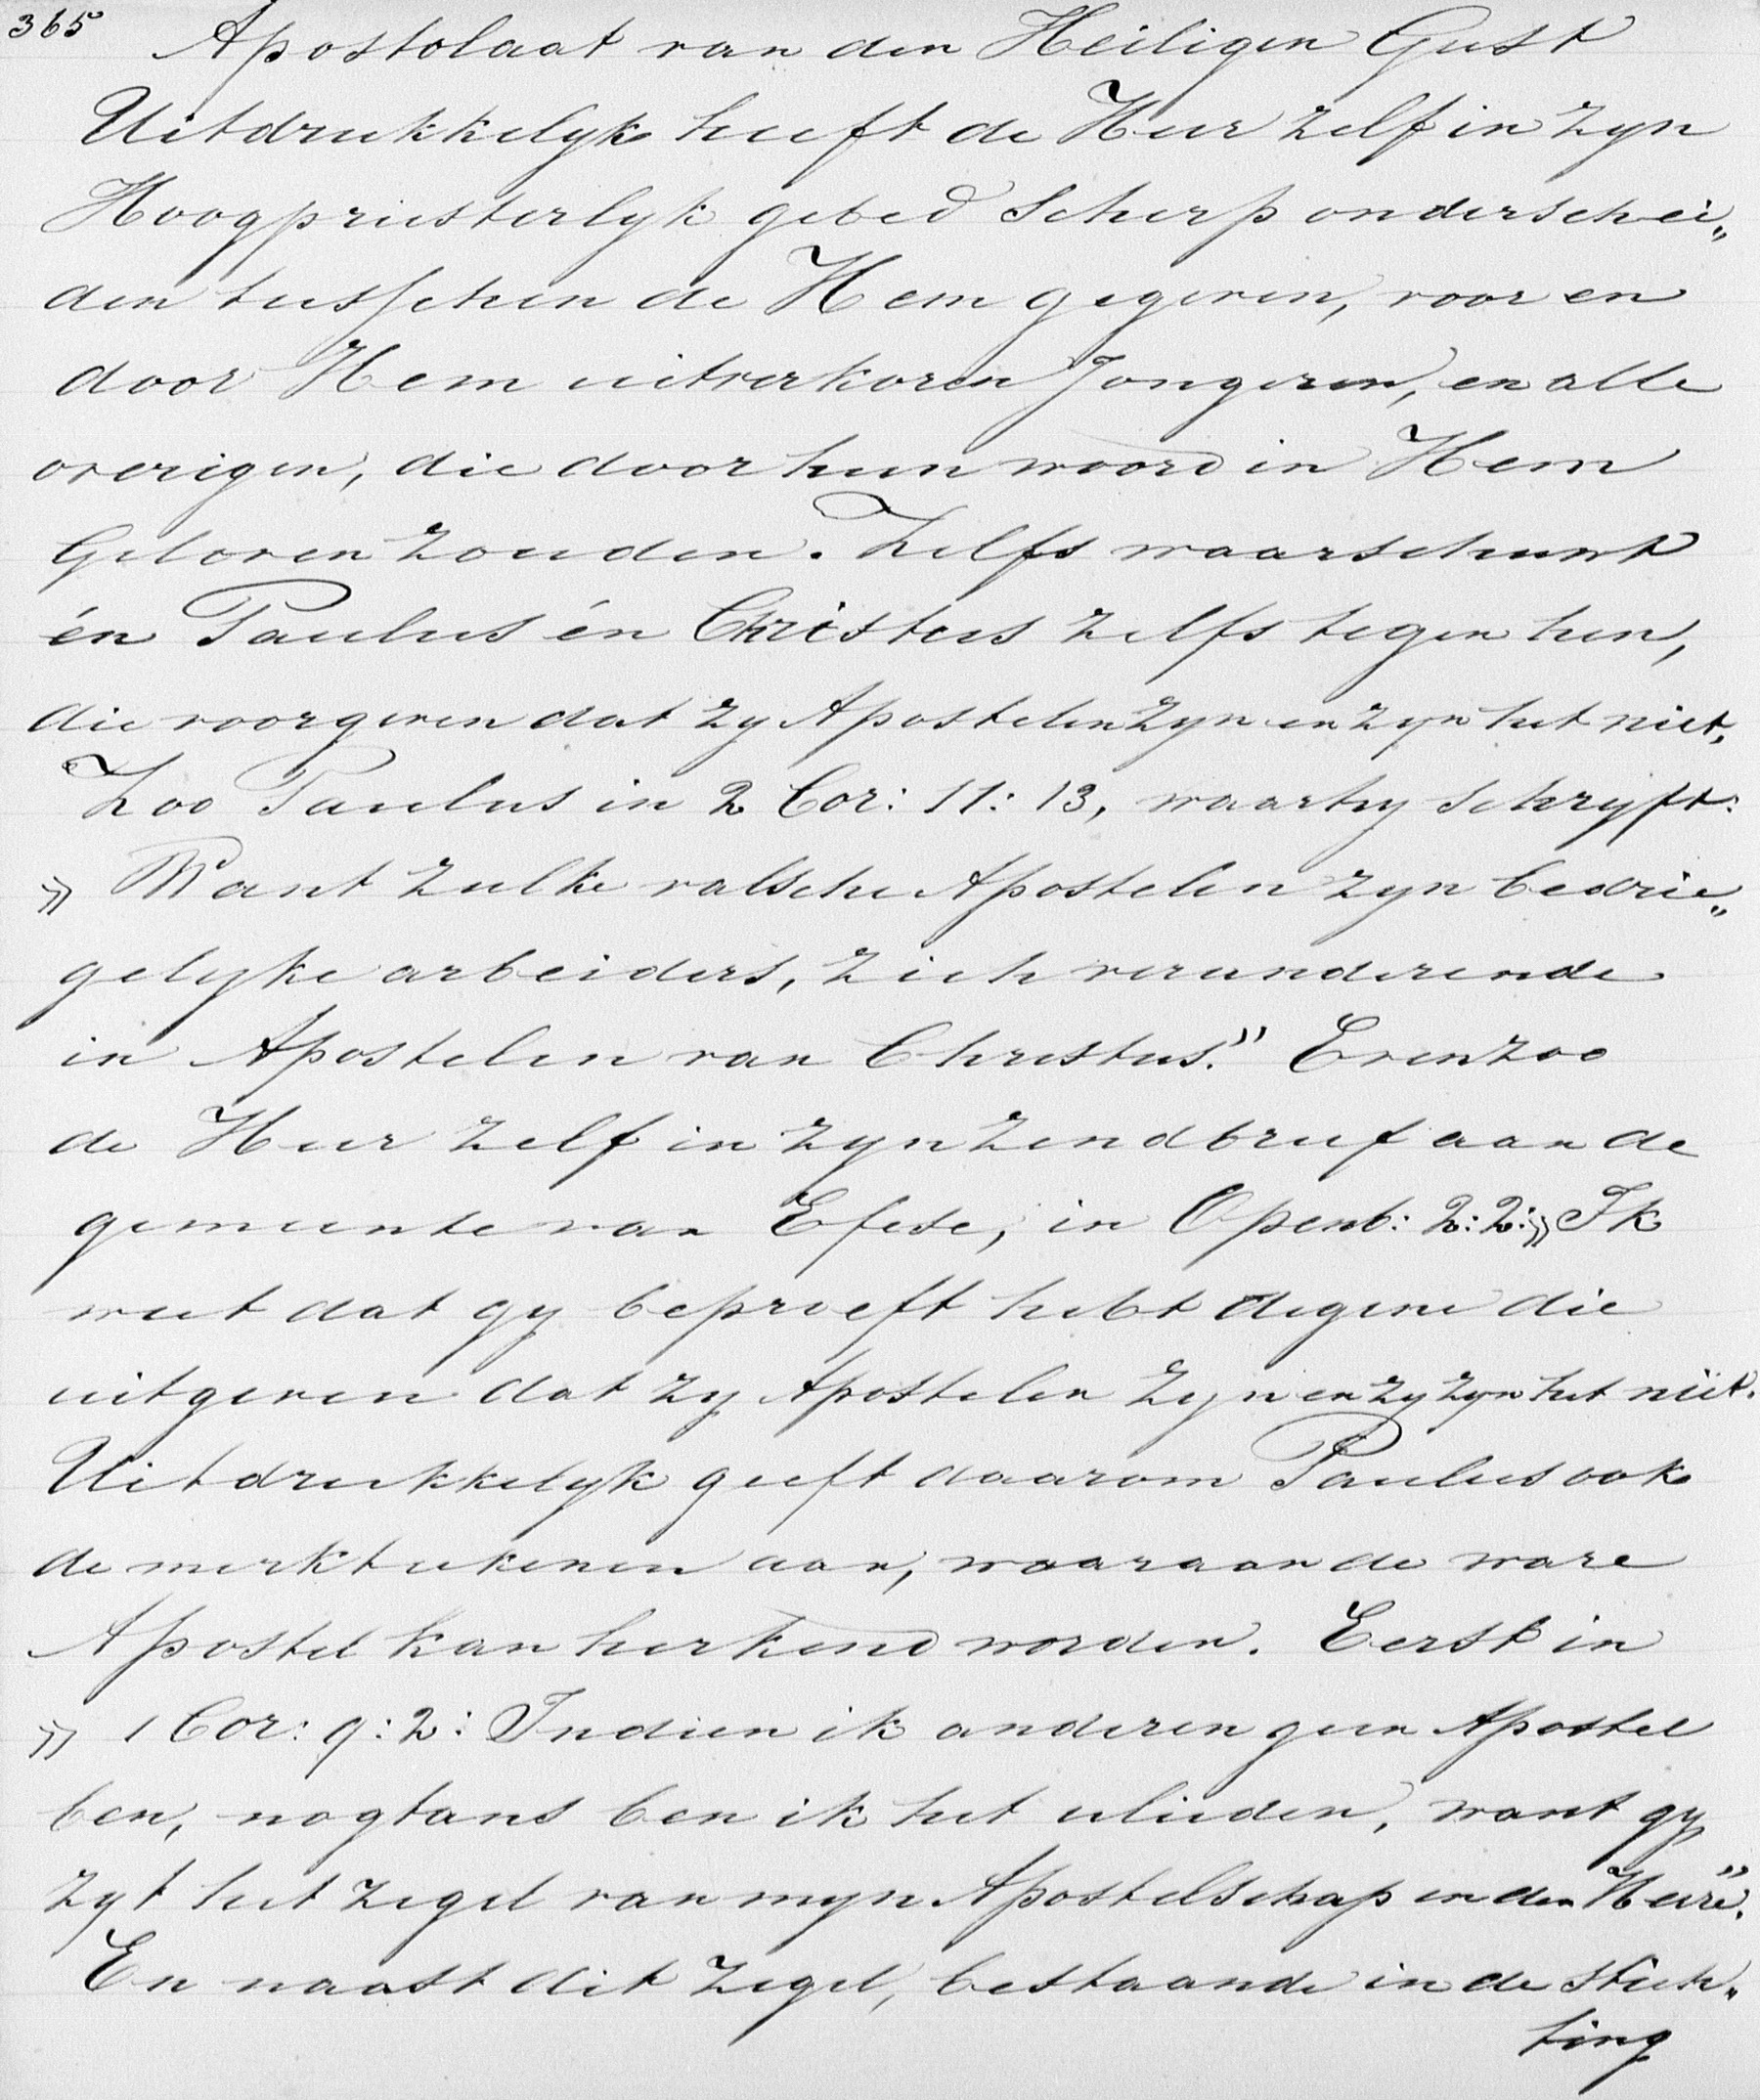 365 Apostolaat van den Heiligen Geest
Uitdrukkelyk heeft de Heer zelf in zyn
Hoogpriesterlyk gebed scherp onderschei„
den tusschen de Hem gegeven, voor en
door Hem uitverkoren Jongeren, en alle
overigen, die door hun woord in Hem
Geloven zouden. Zelfs waarschuwt
én Paulus én Christus zelfs tegen hen,
die voorgeven dat zy Apostelen zyn en zyn het niet.
Zoo Paulus in 2 Cor: 11: 13, waar hy schryft:
» Want zulke valsche Apostelen zyn bedrie„
gelyke arbeiders, zich veranderende
in Apostelen van Christus." Evenzoo
de Heer zelf in zyn Zendbrief aan de
gemeente van Efese, in Openb: 2:2: » Ik
weet dat gy beproeft hebt degene die
uitgeven dat zy Apostelen zyn en zy zyn het niet.
Uitdrukkelyk geeft daarom Paulus ook
de merkteekenen aan, waaraan de ware
Apostel kan herkend worden. Eerst in
» 1 Cor: 9:2: Indien ik anderen geen Apostel
ben, nogtans ben ik het ulieden, want gy
zyt het zegel van myn Apostelschap in den Heere".
En naast dit zegel, bestaande in de stich„
ting